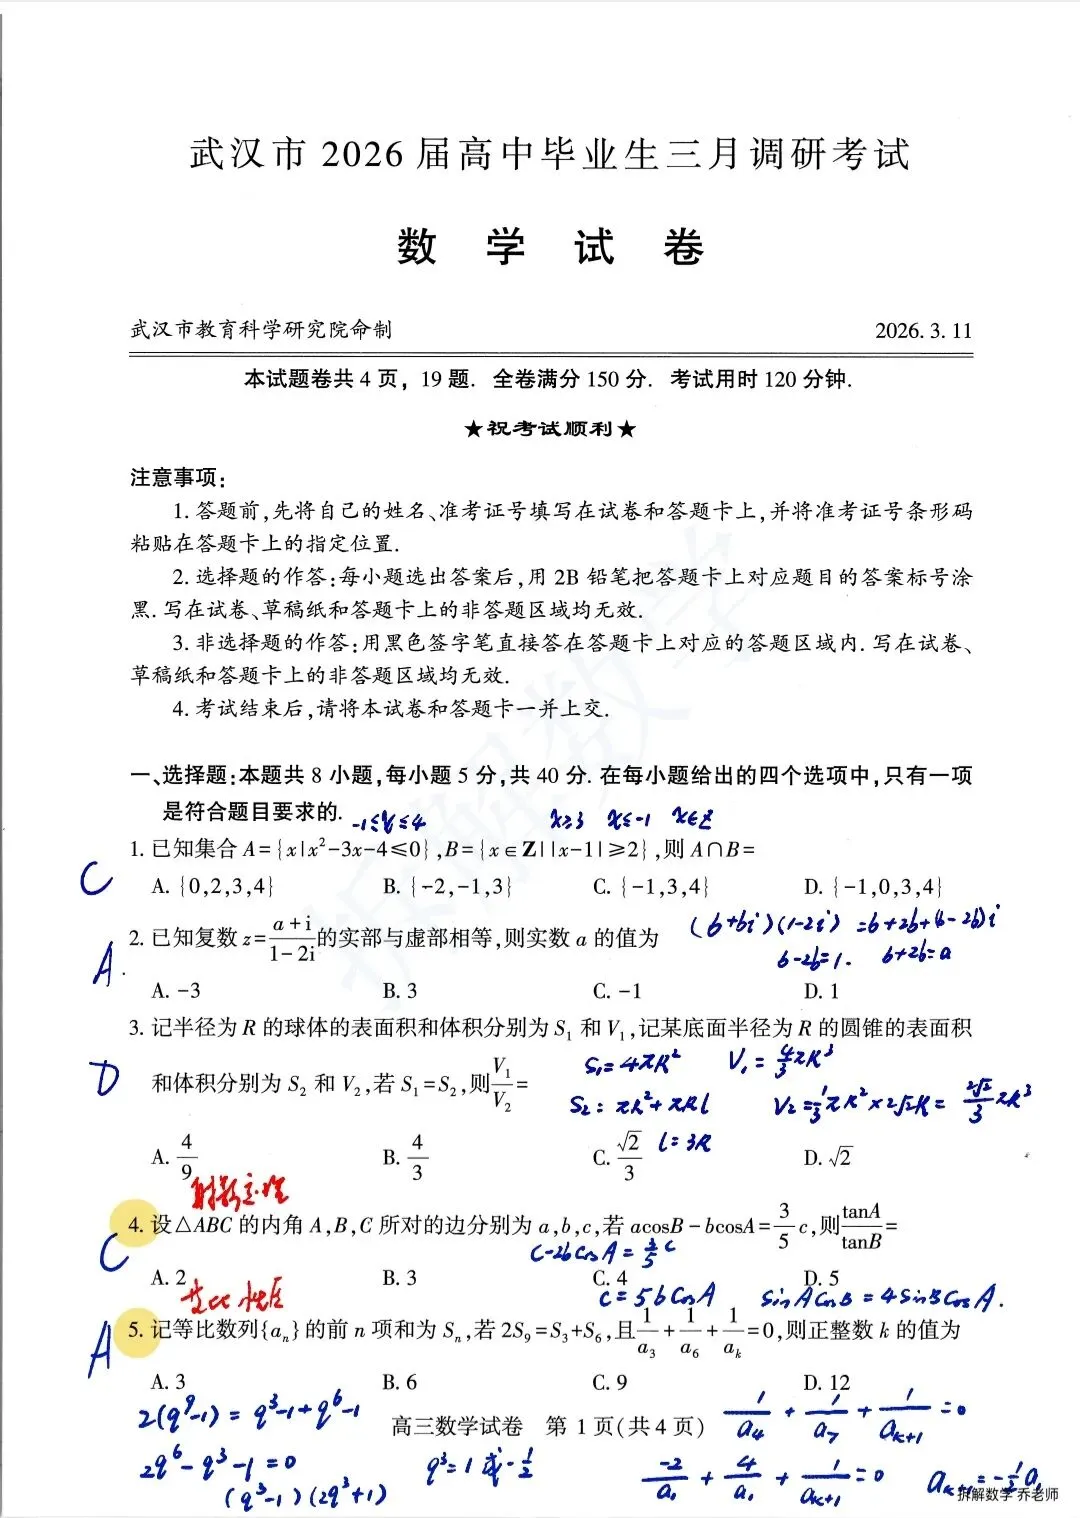 武汉市 2026 届高中毕业生三月调研考试
数 学 试 卷
武汉市教育科学研究院命制 2026.3.11
本试题卷共 4 页，19 题．全卷满分 150 分．考试用时 120 分钟．
★祝考试顺利★
注意事项：
1. 答题前，先将自己的姓名、准考证号填写在试卷和答题卡上，并将准考证号条形码
粘贴在答题卡上的指定位置．
2. 选择题的作答：每小题选出答案后，用 2B 铅笔把答题卡上对应题目的答案标号涂
黑．写在试卷、草稿纸和答题卡上的非答题区域均无效．
3. 非选择题的作答：用黑色签字笔直接答在答题卡上对应的答题区域内．写在试卷、
草稿纸和答题卡上的非答题区域均无效．
4. 考试结束后，请将本试卷和答题卡一并上交．
一、选择题：本题共 8 小题，每小题 5 分，共 40 分．在每小题给出的四个选项中，只有一项
是符合题目要求的．
-1≤x≤4 x≥3 x≤-1 x∈Z
1. 已知集合 A={x|x²-3x-4≤0}，B={x∈Z||x-1|≥2}，则 A∩B=
C
A. {0,2,3,4} B. {-2,-1,3} C. {-1,3,4} D. {-1,0,3,4}
(b+bi)(1-2i)=b+2b+(b-2b)i
2. 已知复数 z=(a+i)/(1-2i)的实部与虚部相等，则实数 a 的值为
b-2b=1. b+2b=a
A.
A. -3 B. 3 C. -1 D. 1
3. 记半径为 R 的球体的表面积和体积分别为 S₁ 和 V₁，记某底面半径为 R 的圆锥的表面积
S₁=4πR² V₁=4/3πR³
D
和体积分别为 S₂ 和 V₂，若 S₁=S₂，则V₁/V₂=
S₂=πR²+πRl V₂=1/3πR²×2√2R=2√2/3πR³
l=3R
A. 4/9 B. 4/3 C. √2/3 D. √2
射影定理
4. 设△ABC 的内角 A,B,C 所对的边分别为 a,b,c，若 acosB-bcosA=3/5c，则tanA/tanB=
C
c-2bcosA=3/5c
A. 2 B. 3 C. 4 D. 5
c=5bcosA sinAcosB=4sinBcosA.
5. 记等比数列{aₙ}的前 n 项和为 Sₙ，若 2S₉=S₃+S₆，且1/a₃+1/a₆+1/aₖ=0，则正整数 k 的值为
A
A. 3 B. 6 C. 9 D. 12
2(q⁹-1)=q³-1+q⁶-1
1/a₄+1/a₇+1/aₖ₊₁=0
高三数学试卷 第 1 页(共 4 页)
2q⁶-q³-1=0 q³=1 或-1/2
(q³-1)(2q³+1)
-2/a₁+4/a₁+1/aₖ₊₁=0 aₖ₊₁=-1/2a₁
拆解数学 乔老师
拆解数学